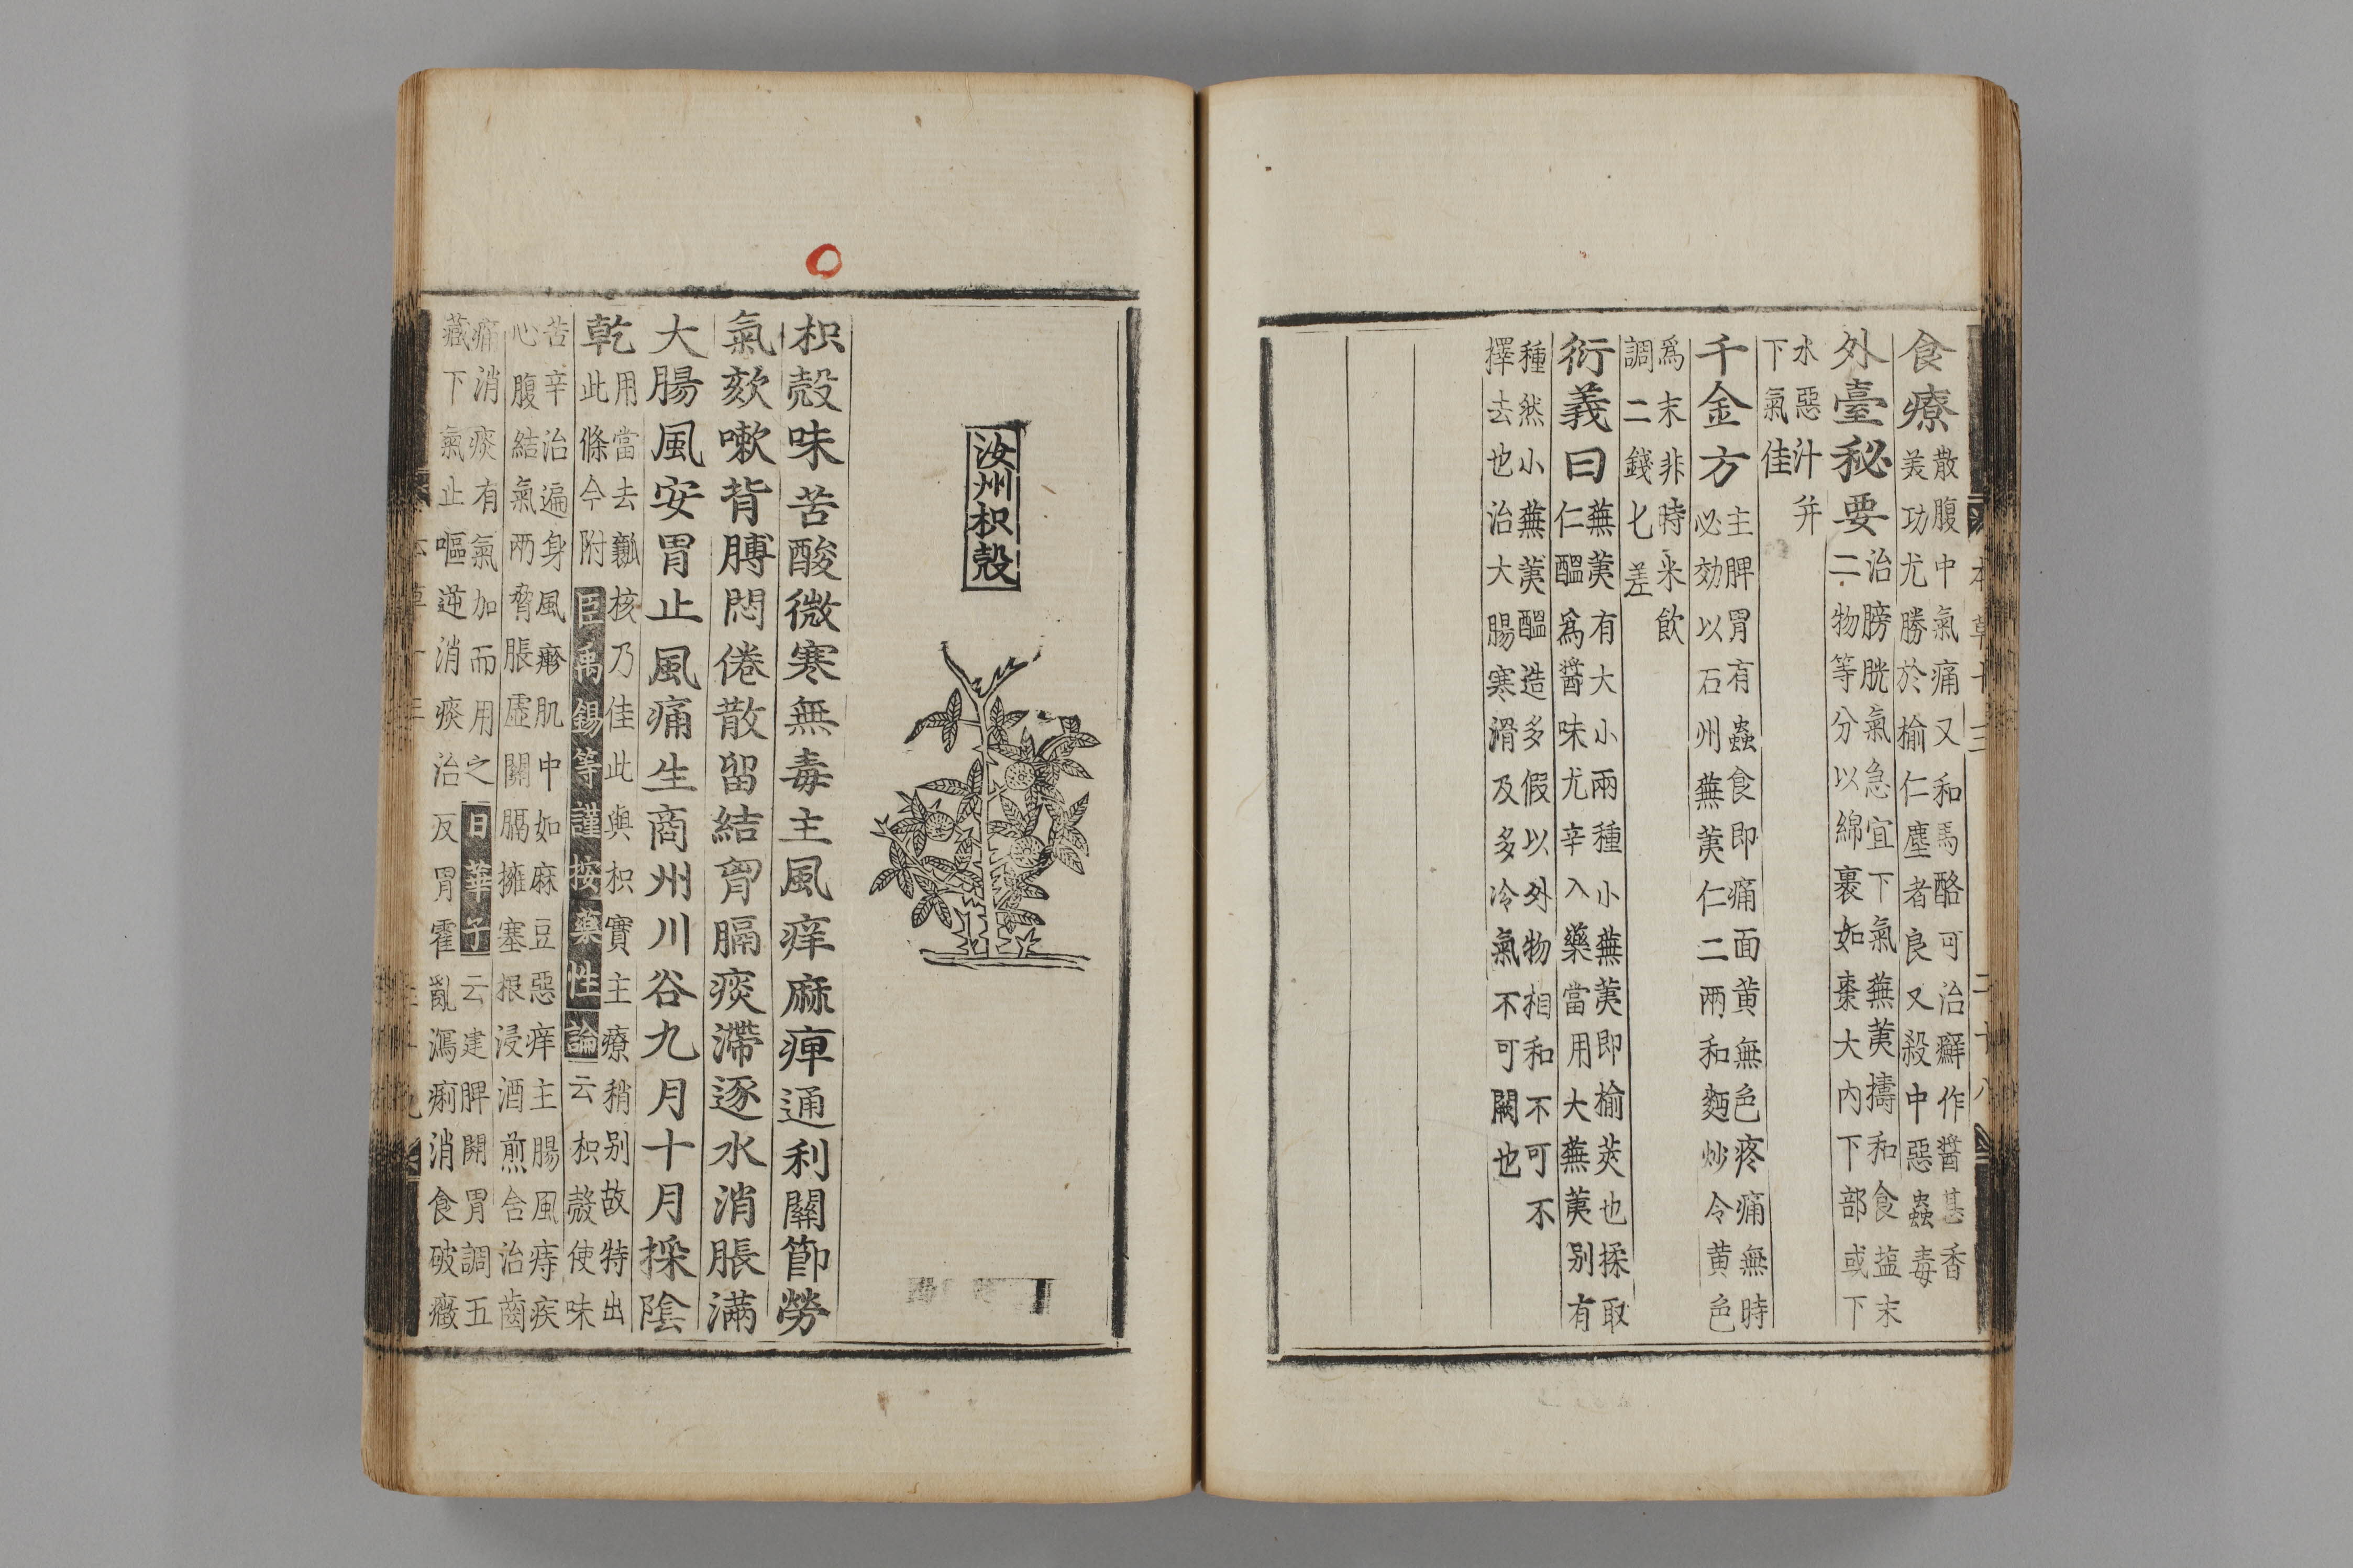 食療
散腹中氣痛又和馬酪可治癬作醬甚香
美功尤勝於榆仁塵者良又殺中惡蟲毒
外臺秘要
治膀胱氣急宜下氣蕪荑擣和食盐末
二物等分以綿裹如棗大內下部或下
水惡汁并
下氣佳
千金方
主脾胃有蟲食即痛面黄無色疼痛無時
必効以石州蕪荑仁二兩和麪炒令黄色
爲末非時米飲
調二錢匕差
衍義曰
蕪荑有大小兩種小蕪荑即榆莢也揉取
仁醖爲醬味尤辛入藥當用大蕪荑别有
種然小蕪荑醖造多假以外物相和不可不
擇去也治大腸寒滑及多冷氣不可闕也
汝州枳殼
枳殼味苦酸微寒無毒主風痒麻痺通利關節勞
氣欬嗽背膊悶倦散留結胷膈痰滯逐水消脹滿
大腸風安胃止風痛生商州川谷九月十月採陰
乾
用當去瓤核乃佳此與枳實主療稍别故特出
此條今附臣禹錫等謹按藥性論云枳殼使味
苦辛治遍身風㾦肌中如麻豆惡痒主腸風痔疾
心腹結氣兩脅脹虛關膈擁塞根浸酒煎含治齒
痛消痰有氣加而用之日華子云建脾開胃調五
藏下氣止嘔逆消痰治反胃霍亂瀉痢消食破癥